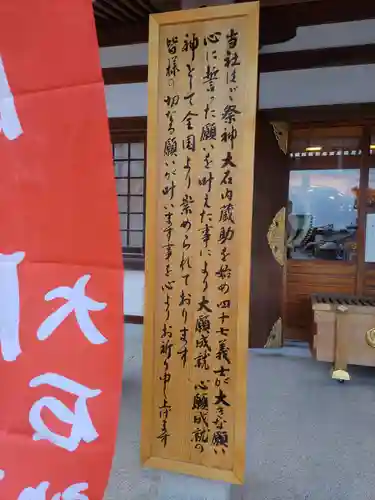 当社はご祭神大石内蔵助を始め四十七義士が大きな願い
心に誓った願いを叶えた事により大願成就、心願成就の
神として全国より崇められております
皆様の切なる願いが叶います事を心よりお祈り申し上げます
大石